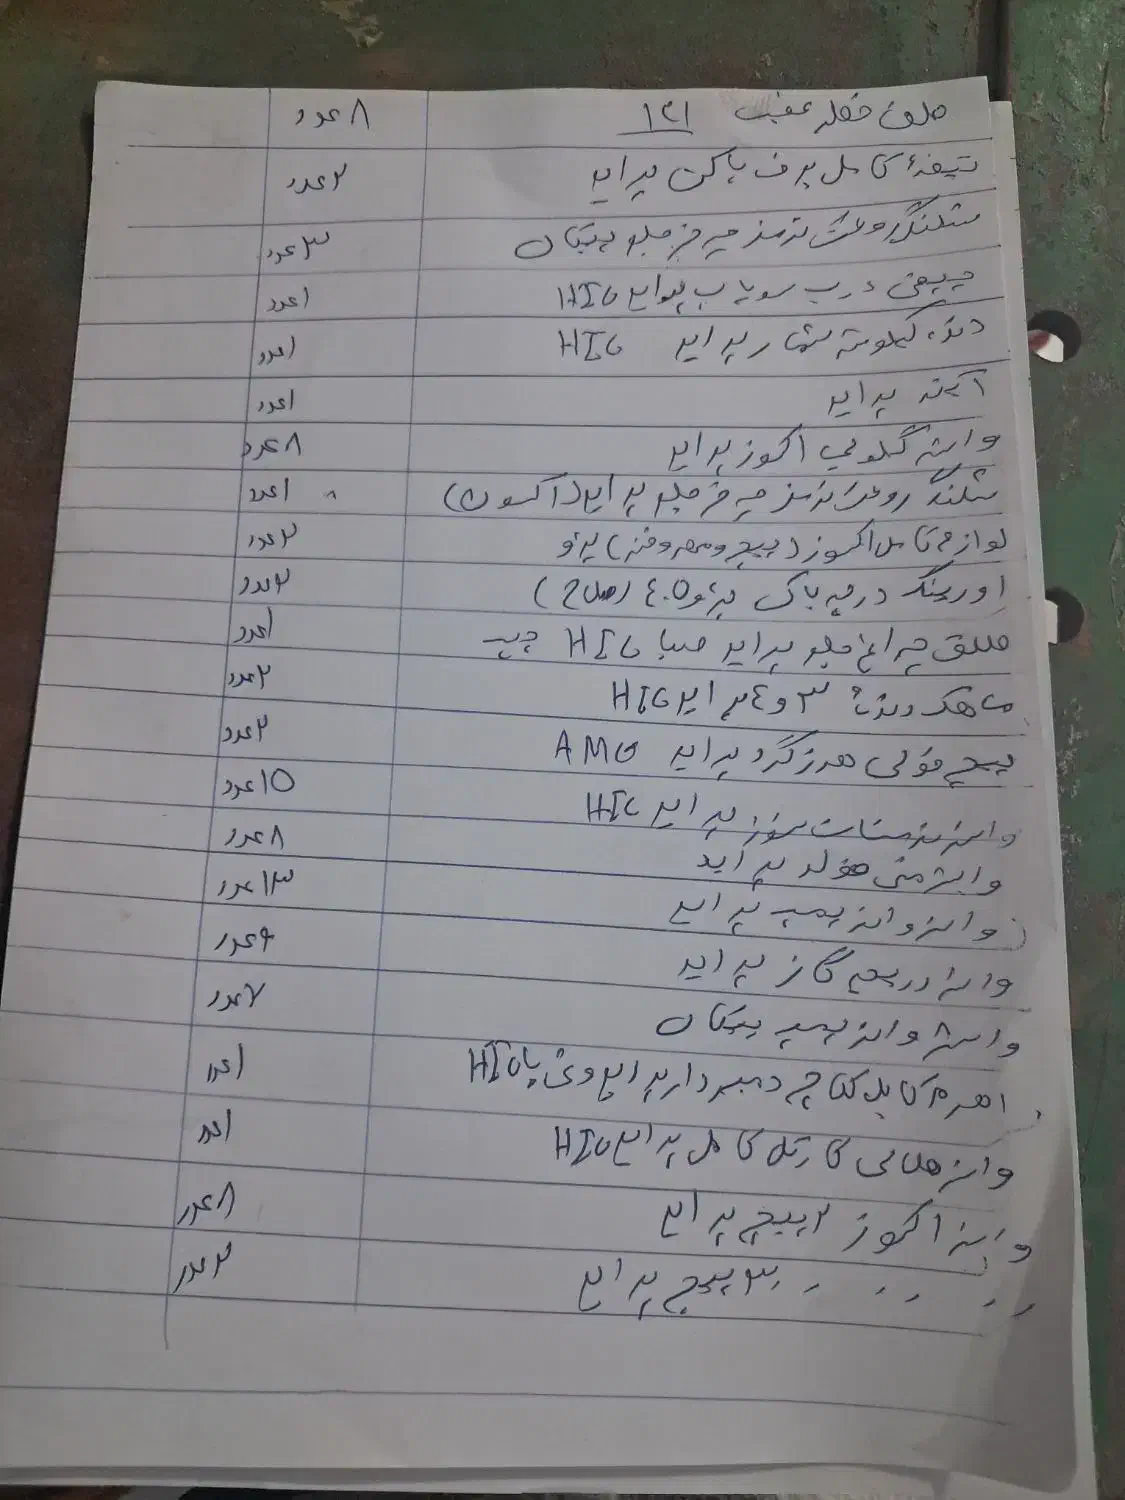 خفلد عقب ۱۳۱ ۸ عدد
تیغهٔ کامل برف پاکن پراید ۲ عدد
شلنگ روغن ترمز چرخ جلو پیکان ۳ عدد
درب سوپاپ پراید HIC ۱ عدد
دنده کیلومتر شمار پراید HIC ۱ عدد
آینه پراید ۱ عدد
واشر گلویی اگزوز پراید ۸ عدد
شلنگ روغن ترمز چرخ جلو پراید (اکسون) ۱ عدد
لوازم کامل اگزوز (پیچ و مهره و فنر) پژو ۲ عدد
اورینگ درب باک پژو ۴۰۵ ۲ عدد
چراغ جلو پراید صبا HIC چپ ۱ عدد
ماهک دندهٔ ۳ و ۴ پراید HIC ۲ عدد
پیچ هرزگرد پراید AMG ۲ عدد
واشر ترموستات نسوز پراید HIC ۱۰ عدد
واشر منی فولد پراید ۸ عدد
واشر واتر پمپ پراید ۱۳ عدد
واشر دریچه گاز پراید ۶ عدد
واشر واتر پمپ پیکان ۷ عدد
اهرم کابل کلاچ پراید HIC ۱ عدد
واشر هلالی کارتل کامل پراید HIC ۱ عدد
واشر اگزوز ۲ پیچ پراید ۸ عدد
" " " " ۳ پیچ پراید ۲ عدد